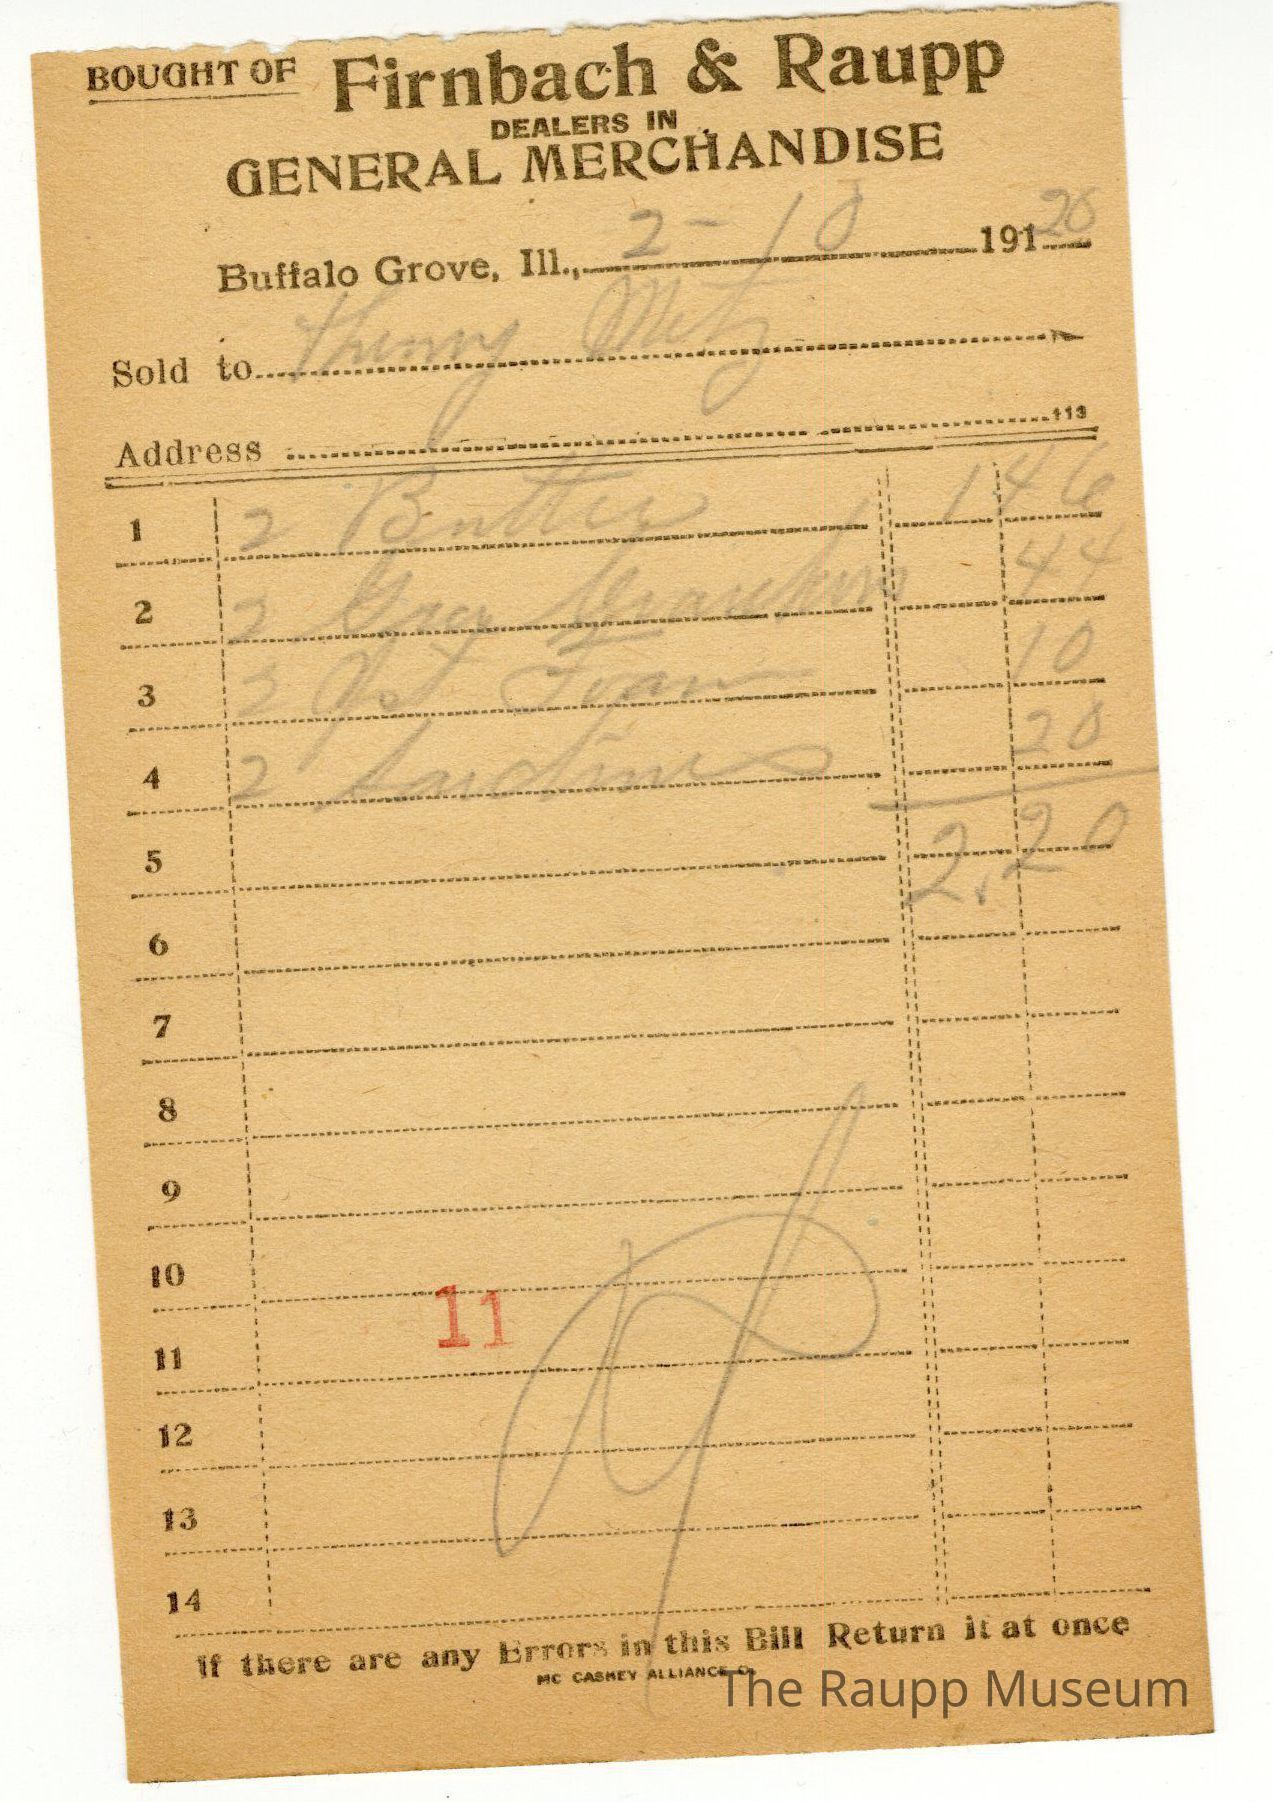 BOUGHT OF Firnbach & Raupp
DEALERS IN
GENERAL MERCHANDISE
Buffalo Grove, Ill., 2-18 191 20
Sold to Henry Metz
Address 113
1 2 Butter 1 46
2 Crackers 44
3 3 10
4 2 Sardines 20
5 2.20
6
7
8
9
10
11
11
12
13
14
If there are any Errors in this Bill Return it at once
MC CASKEY ALLIANCE O.
The Raupp Museum